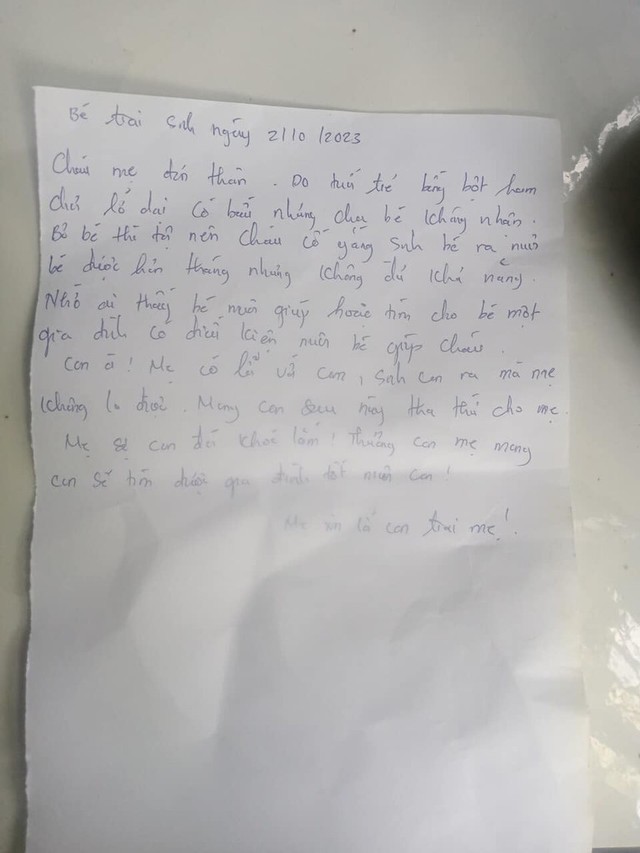 Bé trai sinh ngày 2/10/2023
Cháu mẹ đơn thân. Do tuổi trẻ bồng bột ham
chơi lỡ dại có bầu nhưng cha bé không nhận.
Bỏ bé thì tội nên cháu cố gắng sinh bé ra nuôi
bé được hơn tháng nhưng không đủ khả năng.
Nhờ ai thấy bé nuôi giúp hoặc tìm cho bé một
gia đình có điều kiện nuôi bé giúp cháu.
Con à! Mẹ có lỗi với con, sinh con ra mà mẹ
không lo được. Mong con sau này tha thứ cho mẹ.
Mẹ con khóc lắm! Thương con mẹ mong
con sẽ tìm được gia đình tốt nuôi con!
Mẹ xin lỗi con trai mẹ!